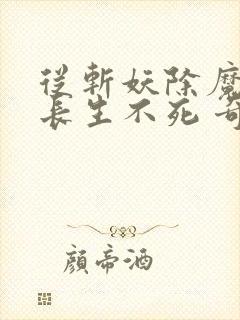 從斬妖除魔
長生不死 奇
顏帝酒